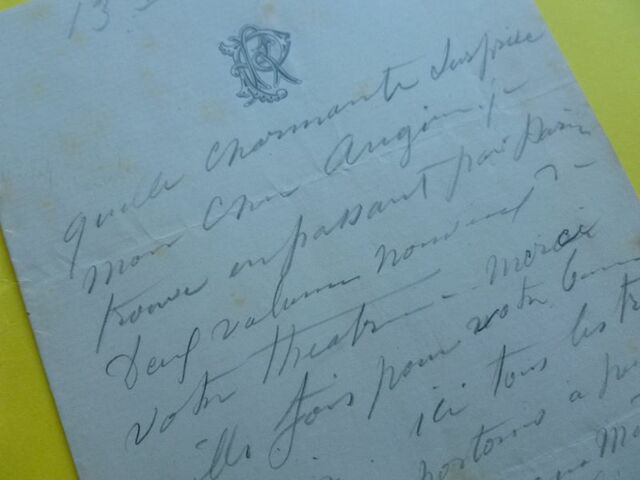 13
quelle charmante surprise
mon cher Augier, je
trouve en passant par Paris
deux volumes nouveaux de
votre theatre - merci
mille fois pour votre bonne
ici tous les
portons a